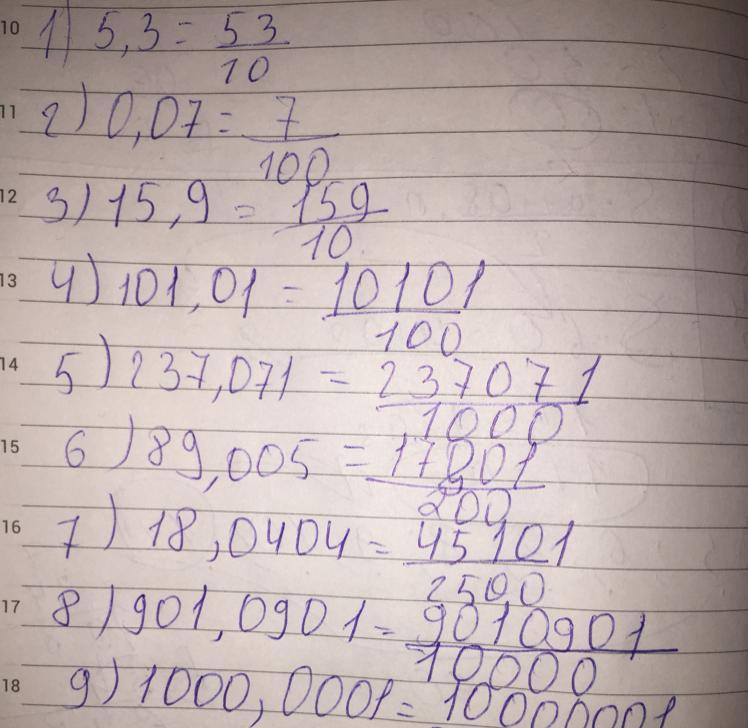 10 1) 5,3 = 53/10
11 2) 0,07 = 7/100
12 3) 15,9 = 159/10
13 4) 101,01 = 10101/100
14 5) 237,071 = 237071/1000
15 6) 89,005 = 17801/200
16 7) 18,0404 = 45101/2500
17 8) 901,0901 = 9010901/10000
18 9) 1000,0001 = 10000001